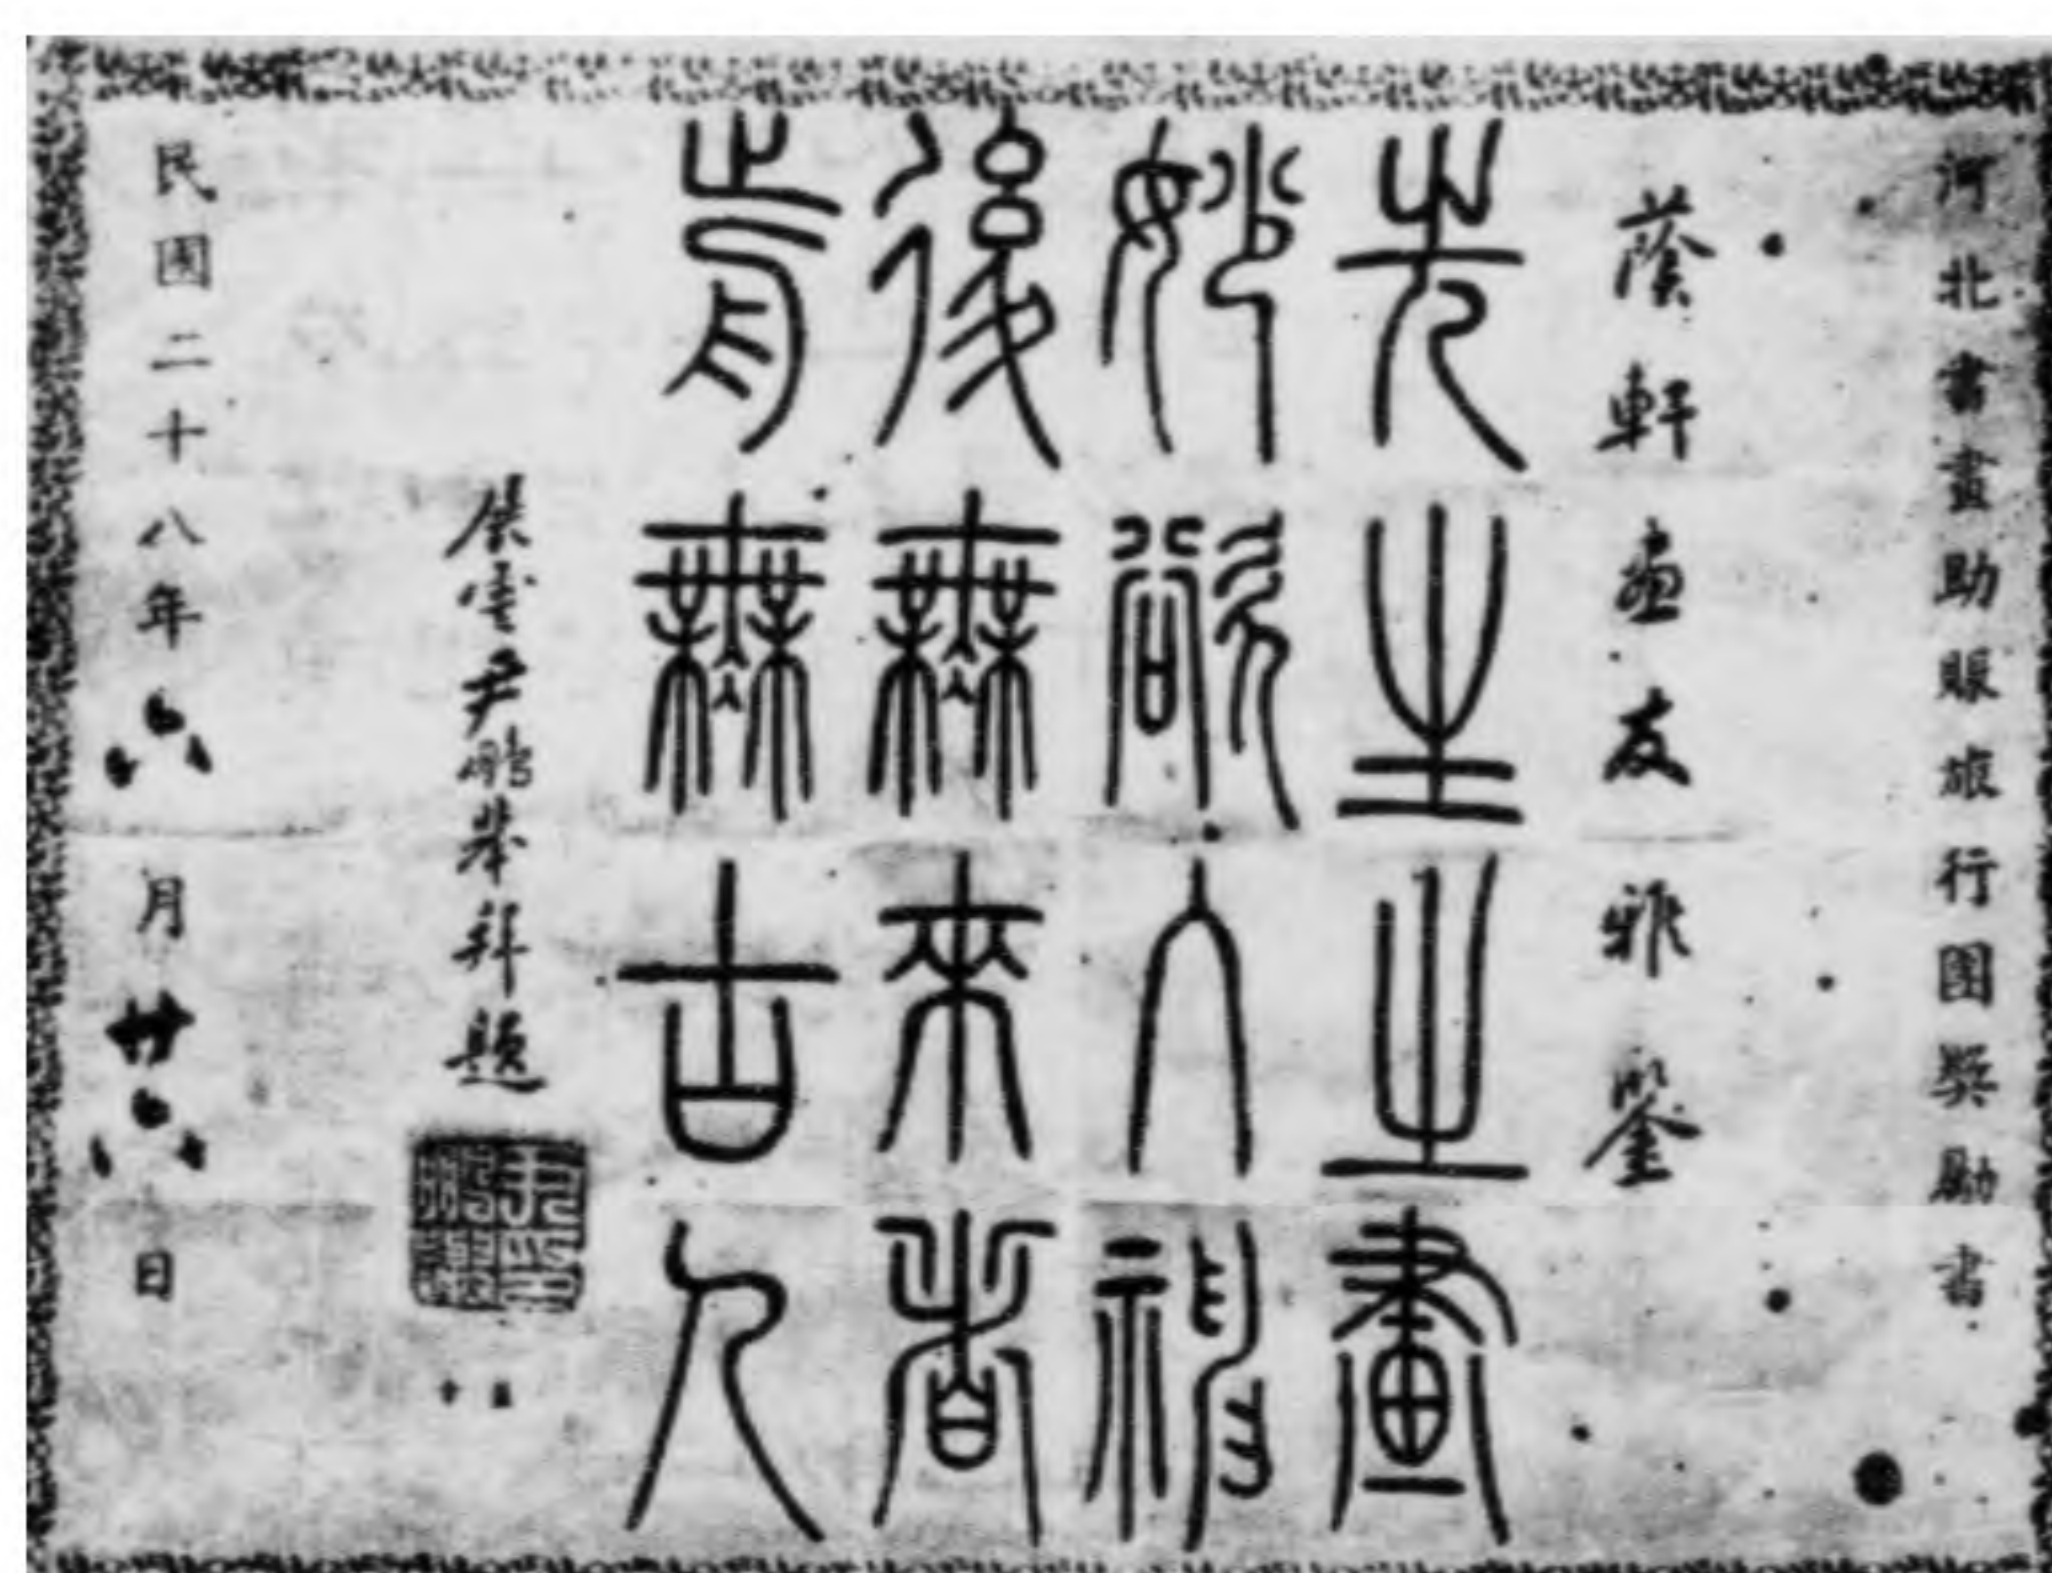 河北書畫助賑旅行團獎勵書
蔭軒畫友雅鑒
先生之畫
妙欲入神
後無來者
前無古人
展雲尹鵬舉拜題
民國二十八年六月廿六日